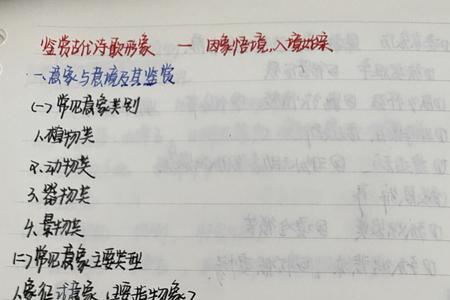 鉴赏古代诗歌形象 — 因象悟境,入境始亲
一、意象与意境及其鉴赏
(一)常见意象类别
1.植物类
2.动物类
3.器物类
4.景物类
(二)常见意象主要类型
1.象征式意象(主要指物象)